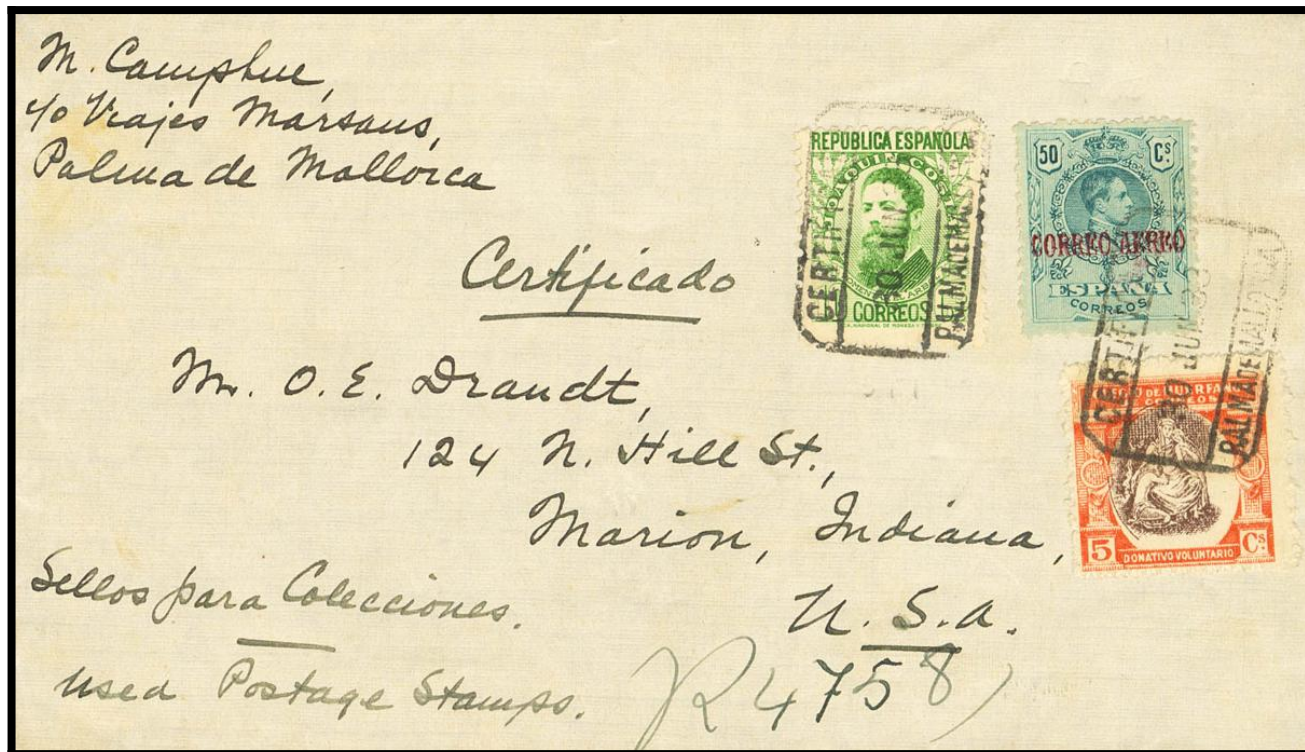 M. Camphue,
c/o Viajes Marsans,
Palma de Mallorca
Certificado
Mr. O. E. Drandt,
124 N. Hill St.,
Marion, Indiana,
U. S. A.
Sellos para Colecciones.
Used Postage Stamps.
R 4758
REPÚBLICA ESPAÑOLA
JOAQUIN COST
CORREOS
CERTIF
30 JUN
PALMADEMA
50 Cs
CORREO AEREO
ESPAÑA
CORREOS
CERTIF
30 JUN 33
PALMADEMALLORCA
DE HUERFAN
CORREOS
5 Cs
DONATIVO VOLUNTARIO